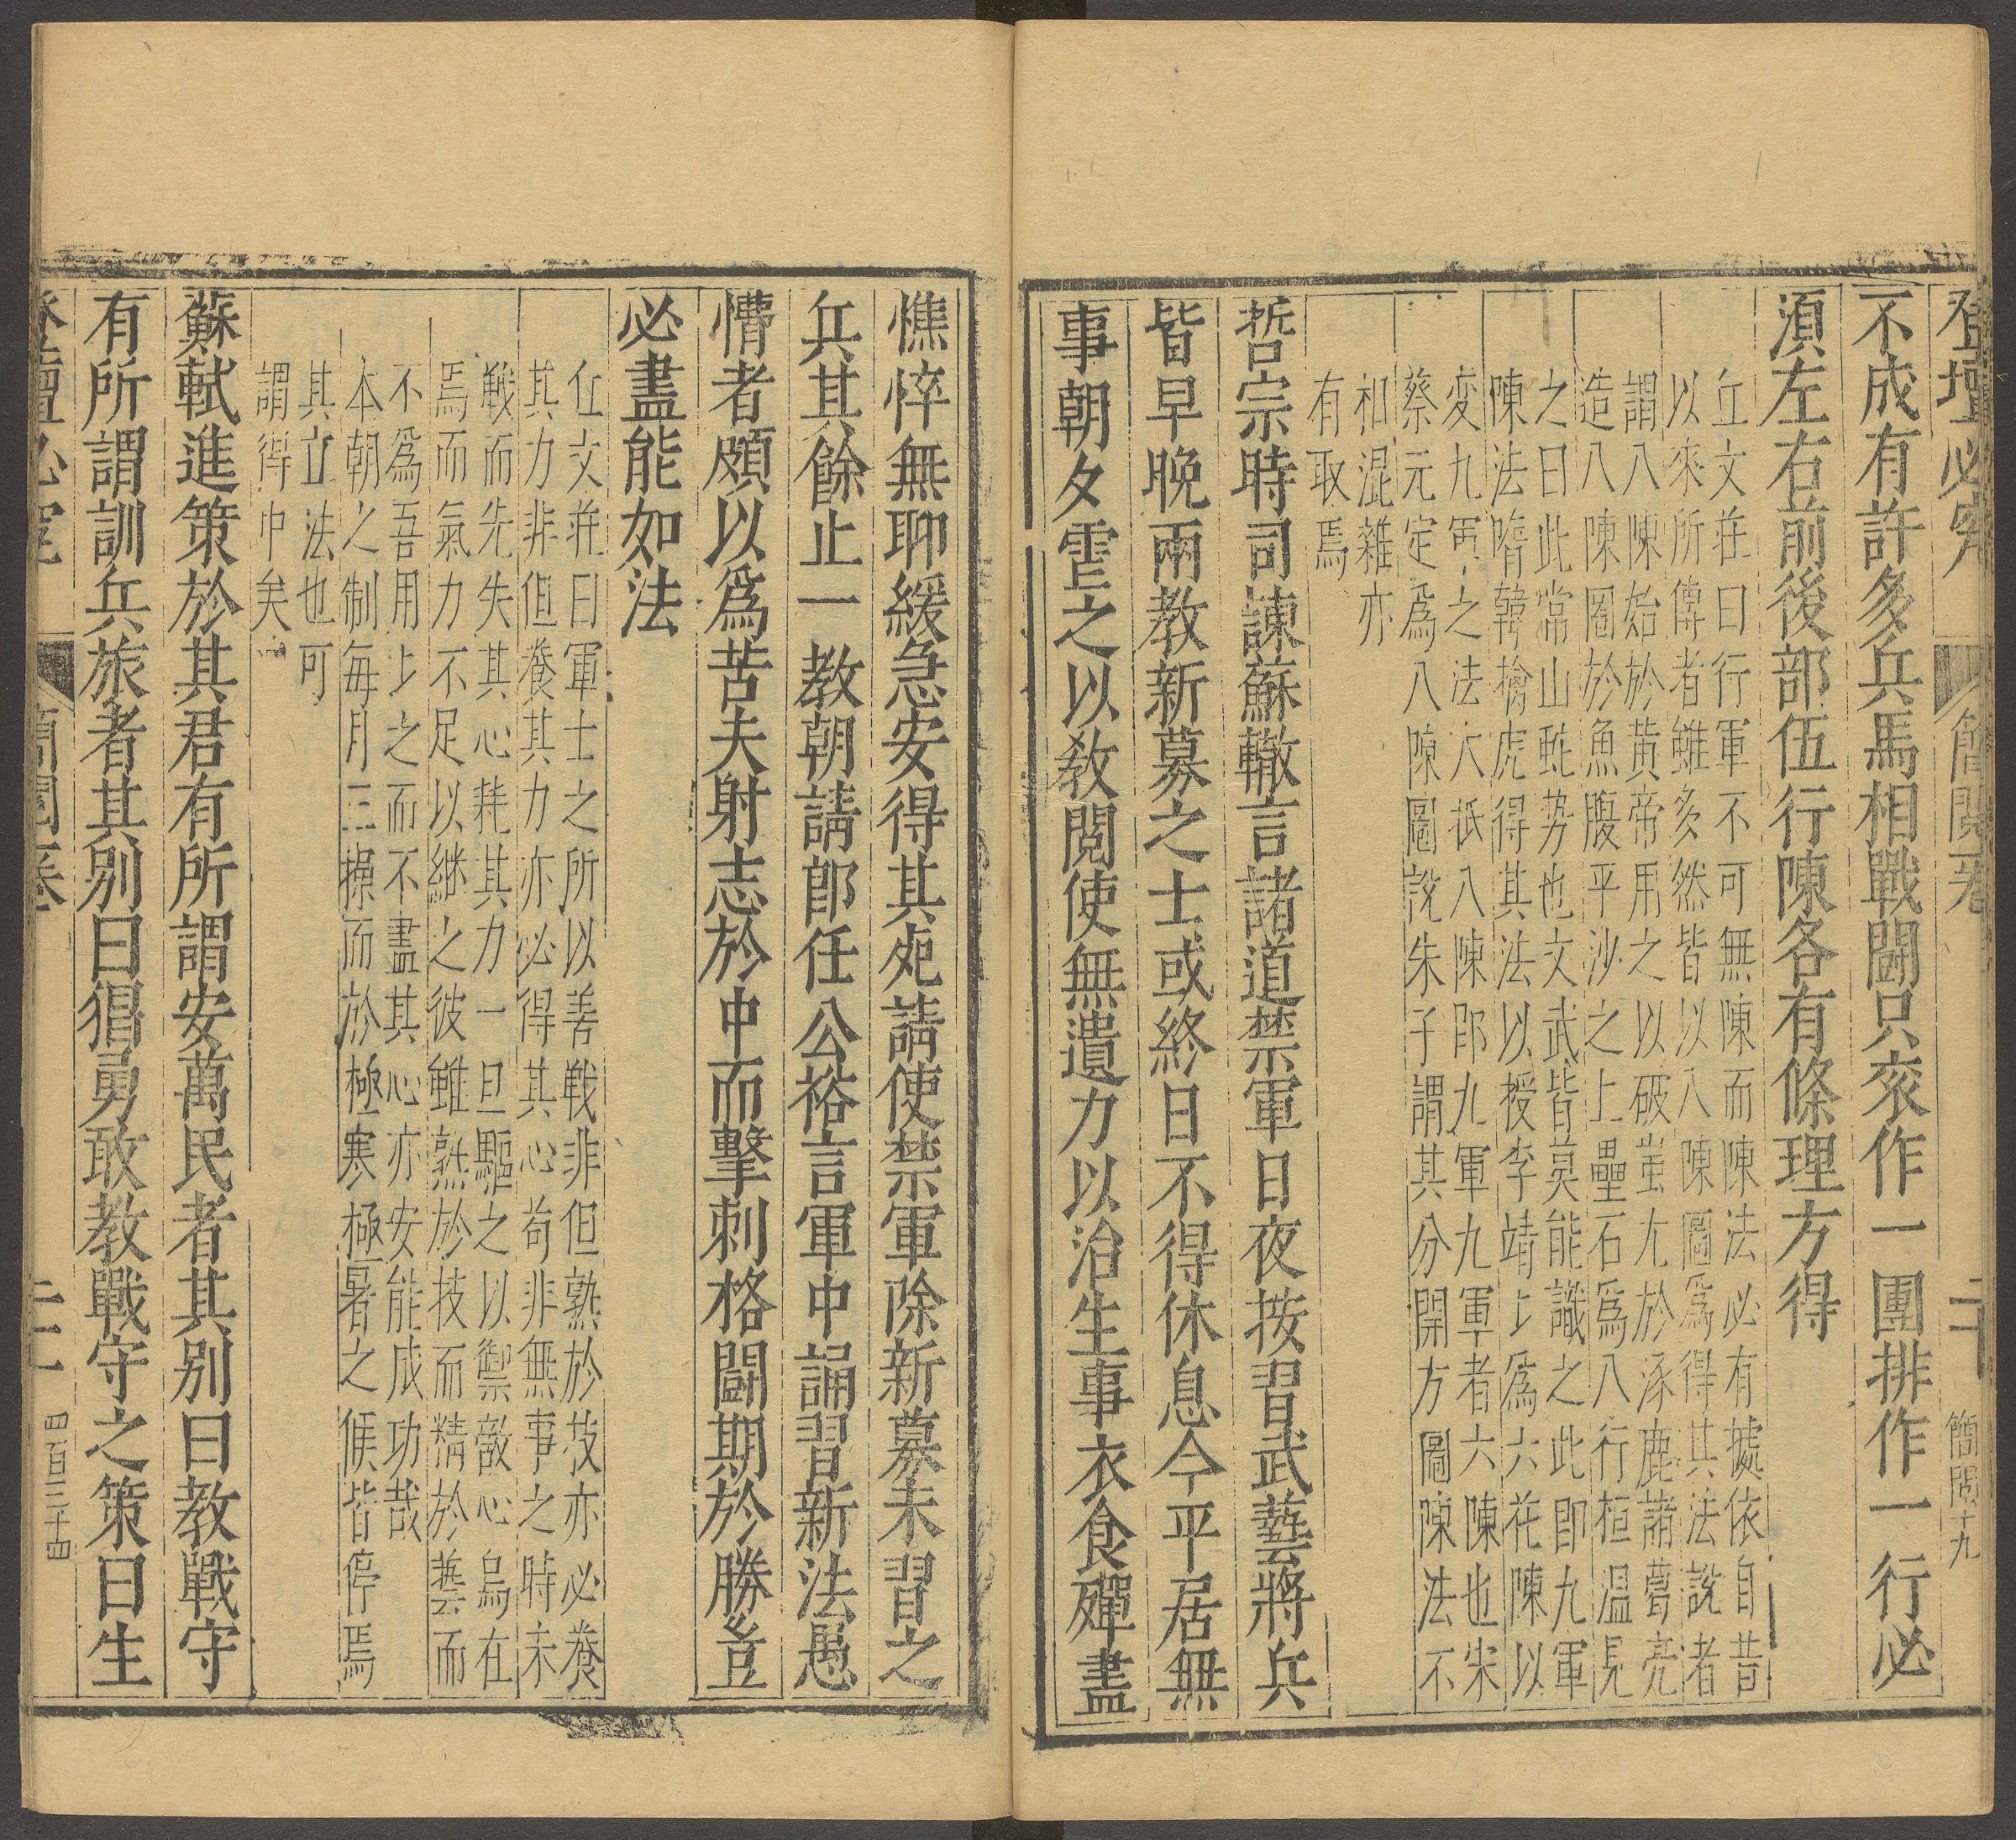 登壇必究 簡閱卷 二十 簡閱十九
不成有許多兵馬相戰鬪只衮作一團排作一行必
須左右前後部伍行陳各有條理方得
丘文莊曰行軍不可無陳而陳法必有據依自昔
以來所傳者雖多然皆以八陳圖爲得其法說者
謂八陳始於黃帝用之以破蚩尤於涿鹿諸葛亮
造八陳圖於魚腹平沙之上壘石爲八行桓温見
之曰此常山虵势也文武皆莫能識之此即九軍
陳法隋韓擒虎得其法以授李靖〻爲六花陳以
変九軍之法大抵八陳即九軍九軍者六陳也宋
蔡元定爲八陳圖說朱子謂其分開方圖陳法不
和混雜亦
有取焉
哲宗時司諫蘇轍言諸道禁軍日夜按習武藝將兵
皆早晚兩教新募之士或終日不得休息今平居無
事朝夕虐之以敎閱使無遺力以治生事衣食殫盡
憔悴無聊緩急安得其死請使禁軍除新募未習之
兵其餘止一教朝請郎任公裕言軍中誦習新法愚
懵者頗以爲苦夫射志於中而擊刺格鬪期於勝豈
必盡能如法
丘文莊曰軍士之所以善戦非但熟於技亦必養
其力非但養其力亦必得其心苟非無事之時未
戦而先失其心耗其力一旦驅之以禦敵心烏在
焉而氣力不足以継之彼雖熟於技而精於藝而
不爲吾用〻之而不盡其心亦安能成功哉
本朝之制每月三操而於極寒極暑之候皆停焉
其立法也可
謂得中矣
蘇軾進策於其君有所謂安萬民者其别曰教戰守
有所謂訓兵旅者其别曰猖勇敢教戰守之策曰生
登壇必究 簡閱卷 二十一 四百三十四